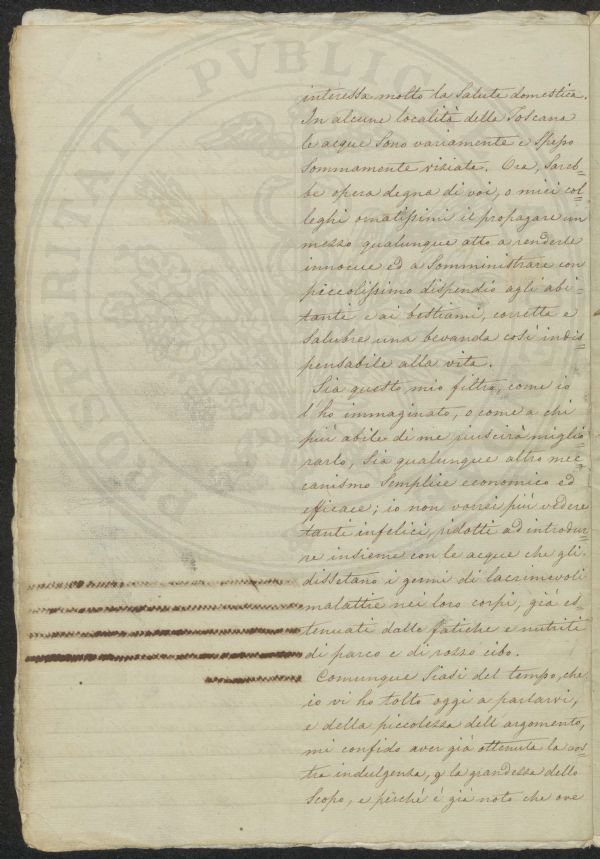 interessa molto la salute domestica.
In alcune località della Toscana
le acque sono variamente e spesso
sommamente viziate. Ora, sareb=
be opera degna di voi, o miei col=
leghi ornatissimi il propagare un
mezzo qualunque atto a renderle
innocue ed a somministrare con
piccolissimo dispendio agli abi=
tanti e ai bestiami, corretta e
salubre una bevanda così indis=
pensabile alla vita.
Sia questo mio filtro, come io
l'ho immaginato, o come a chi
più abile di me riuscirà miglio=
rarlo, sia qualunque altro mec=
canismo semplice economico ed
efficace; io non vorrei più vedere
tanti infelici, ridotti ad introdur=
re insieme con le acque che gli
dissetano i germi di lacrimevoli
malattie nei loro corpi, già es=
tenuati dalle fatiche e nutriti
di parco e di rozzo cibo.
Comunque siasi del tempo, che
io vi ho tolto oggi a parlarvi,
e della piccolezza dell'argomento,
mi confido aver già ottenuta la vos=
tra indulgenza, p la grandezza dello
scopo, e perchè è già noto che ove
PUBLICA